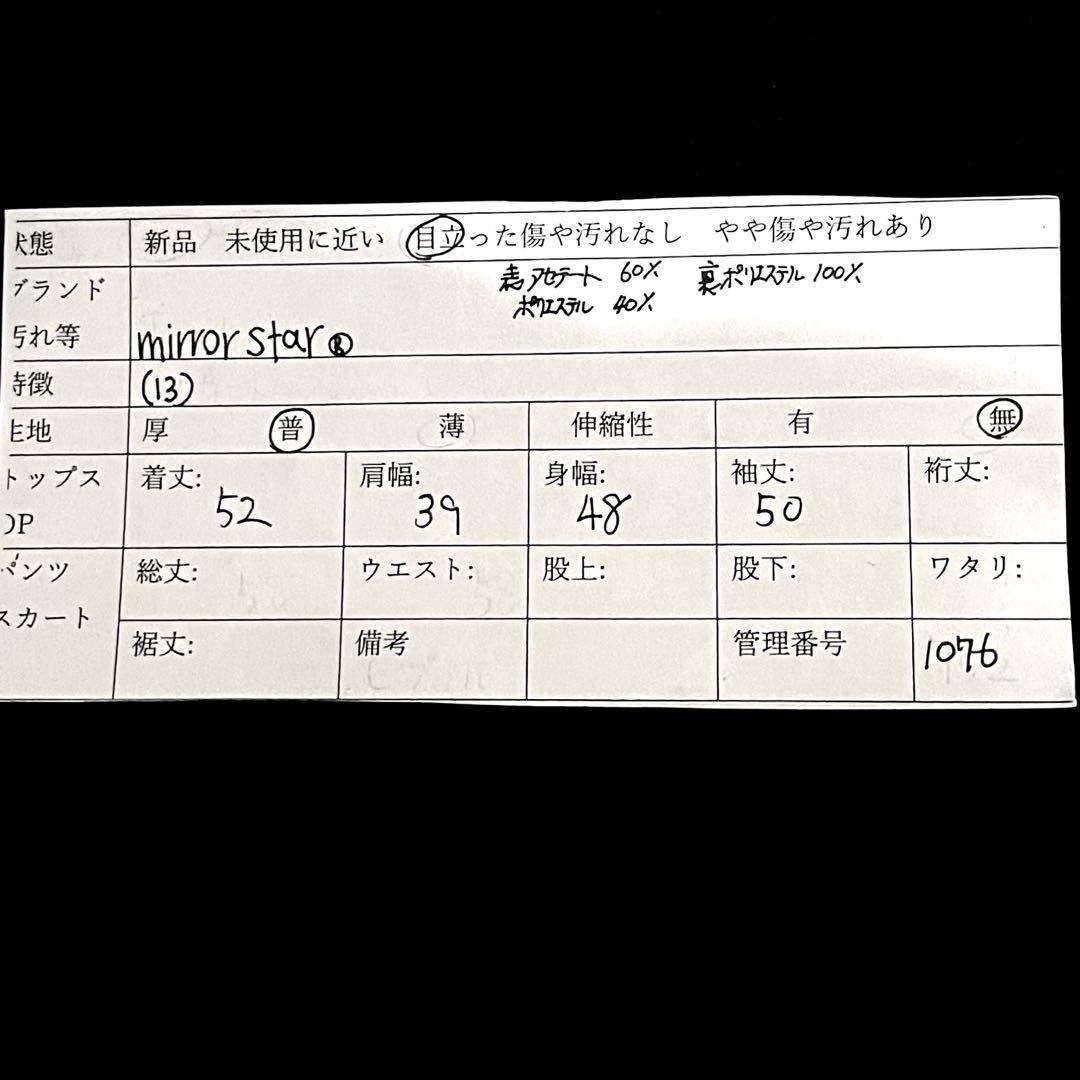 状態 新品 未使用に近い 目立った傷や汚れなし やや傷や汚れあり
ブランド 表アセテート 60% 裏ポリエステル 100%
ポリエステル 40%
汚れ等 mirror star Ⓡ
特徴 (13)
生地 厚 普 薄 伸縮性 有 無
トップス 着丈: 肩幅: 身幅: 袖丈: 裄丈:
OP 52 39 48 50
パンツ 総丈: ウエスト: 股上: 股下: ワタリ:
スカート
裾丈: 備考 管理番号 1076